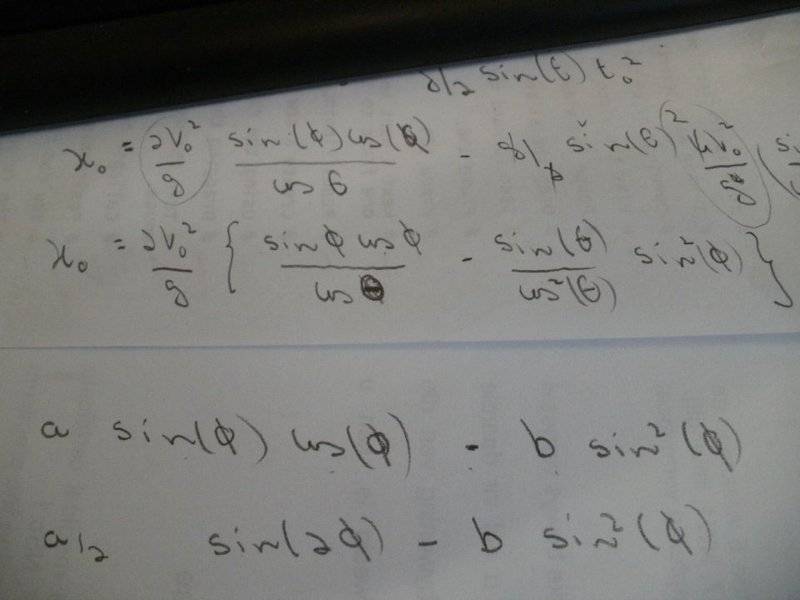 g/2 sin(θ) t₀²
x₀ = 2V₀²/g sin(ϕ)cos(ϕ)/cos θ - g/2 sin(θ) 4V₀²/g² (
x₀ = 2V₀²/g { sinϕ cosϕ/cosθ - sin(θ)/cos²(θ) sin²(ϕ) }
a sin(ϕ) cos(ϕ) - b sin²(ϕ)
a/2 sin(2ϕ) - b sin²(ϕ)